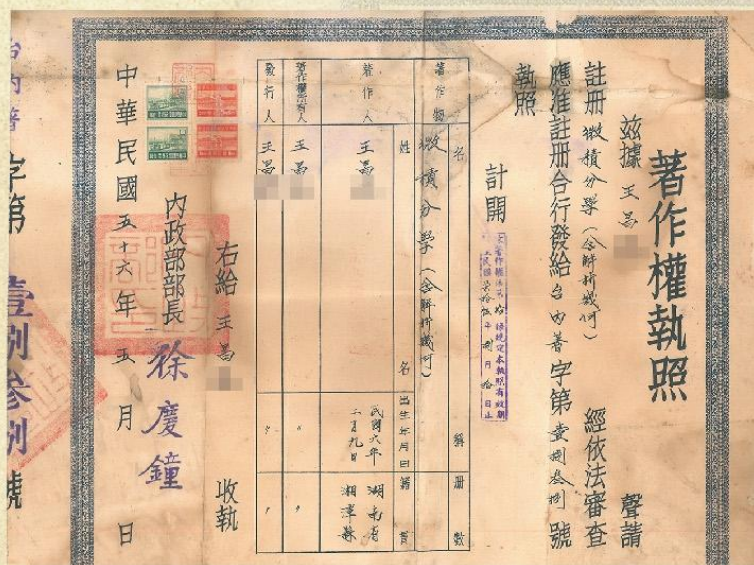 著作權執照
茲據 王昌 聲請
註册 微積分學（含解析幾何） 經依法審查
應准註册合行發給台內著字第壹捌叁捌號
執照
計開
著作物 名 稱 册數
微積分學（含解析幾何）
姓 名 出生年月日 籍貫
著作人 王昌 民國六年二月九日 湖南省湘潭縣
著作權所有人 王昌 〃 〃
發行人 王昌 〃 〃
右給 王昌 收執
內政部部長 徐慶鐘
中華民國五十六年五月 日
台內著字第壹捌叁捌號